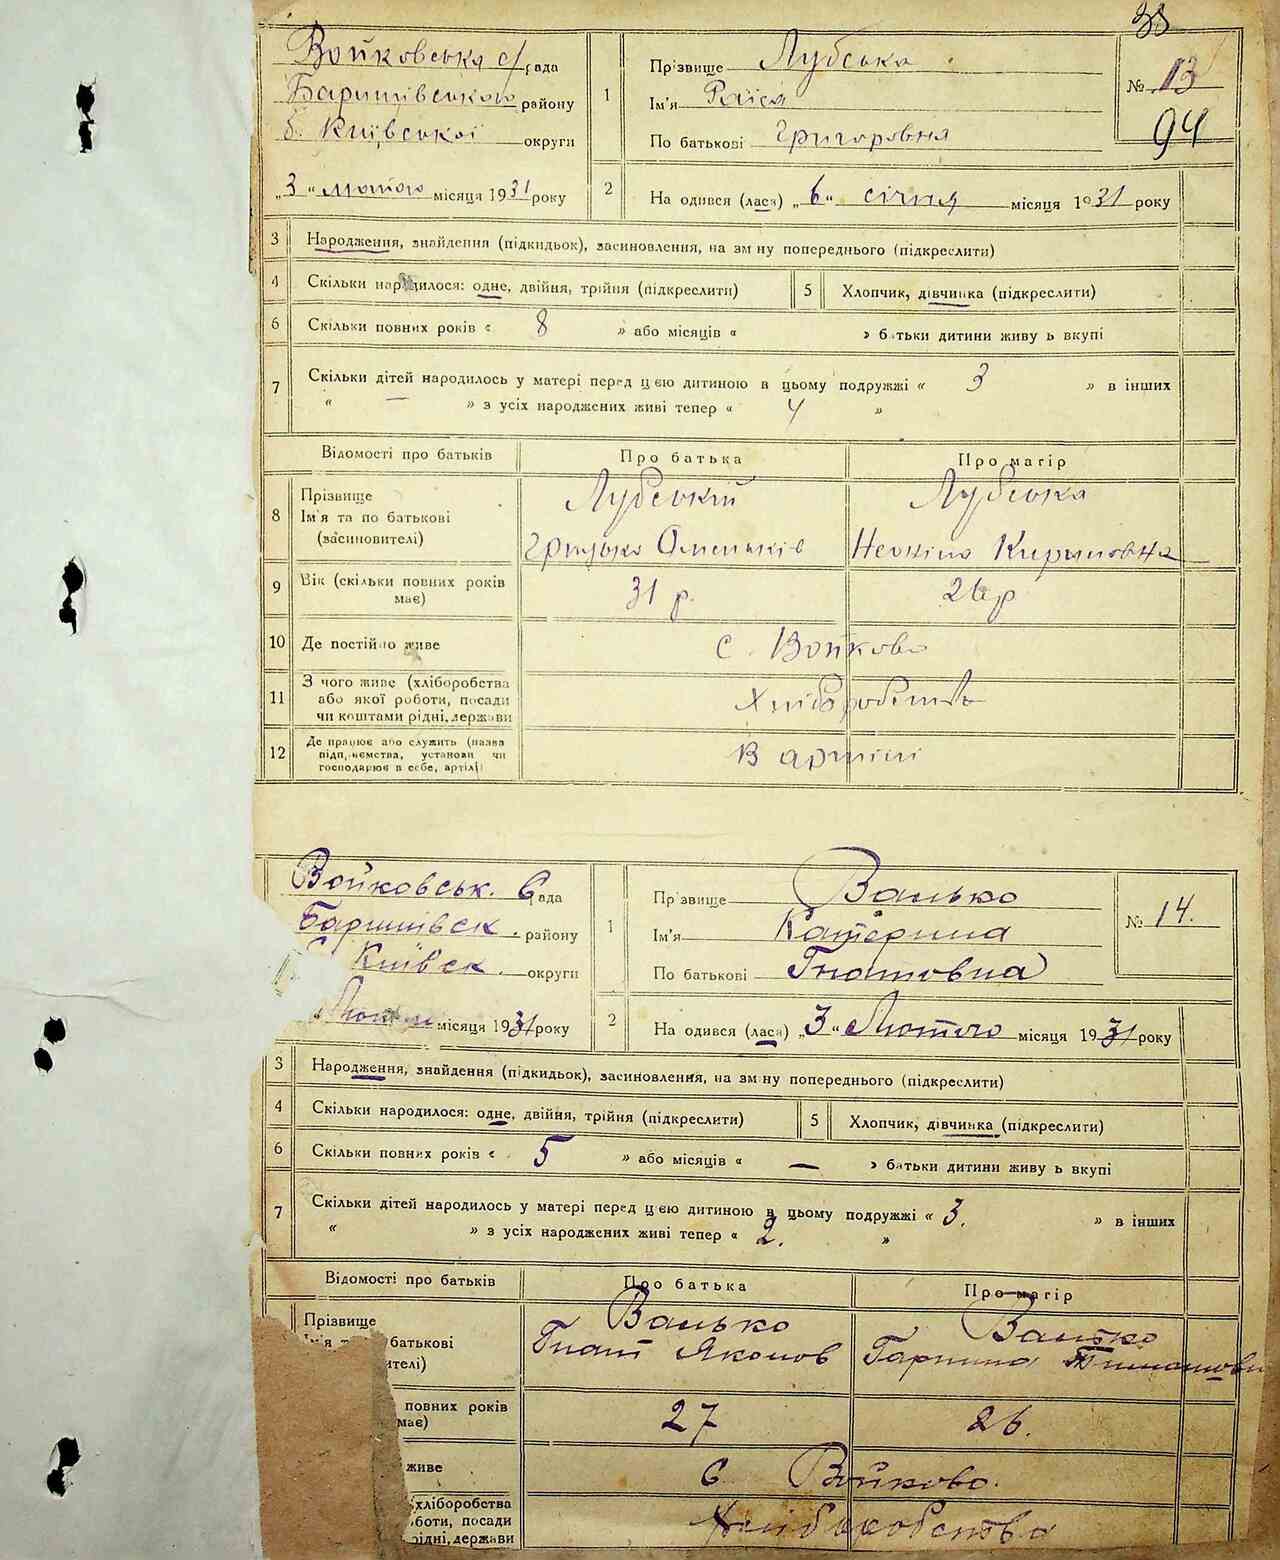 Войковська с/рада
Баришівського району
б. Київської округи
„3" лютого місяця 1931 року
1
Прізвище Лубська
Ім'я Раїса
По батькові Григоровня
№ 13
94
2
На одився (ласа) „6" січня місяця 1931 року
3 Народження, знайдення (підкидьок), засиновлення, на зм ну попереднього (підкреслити)
4 Скільки народилося: одне, двійня, трійня (підкреслити)
5 Хлопчик, дівчинка (підкреслити)
6 Скільки повних років « 8 » або місяців « » батьки дитини живу ь вкупі
7 Скільки дітей народилось у матері перед цією дитиною в цьому подружжі « 3 » в інших
« — » з усіх народжених живі тепер « 4 »
Відомості про батьків Про батька Про матір
8 Прізвище Лубський Лубська
Ім'я та по батькові
(засиновителі) Грицько Омельків Неоніла Кириловна
9 Вік (скільки повних років має) 31 р. 26 р
10 Де постійно живе с. Войкове
11 З чого живе (хліборобства
або якої роботи, посади Хліборобств
чи коштами рідні, держави
12 Де працює або служить (назва
підприємства, установи чи В артілі
господарює в себе, артілі)
Войковськ. С ада
Баришівськ. району
Київськ. округи
Лютого місяця 1931 року
1
Прізвище Валько
Ім'я Катерина
По батькові Гнатовна
№ 14.
2
На одився (ласа) „3" Лютого місяця 1931 року
3 Народження, знайдення (підкидьок), засиновлення, на зм ну попереднього (підкреслити)
4 Скільки народилося: одне, двійня, трійня (підкреслити)
5 Хлопчик, дівчинка (підкреслити)
6 Скільки повних років « 5 » або місяців « — » батьки дитини живу ь вкупі
7 Скільки дітей народилось у матері перед цією дитиною в цьому подружжі « 3. » в інших
« » з усіх народжених живі тепер « 2. »
Відомості про батьків Про батька Про матір
Прізвище Валько Валько
батькові Гнат Якомов Гарпина
ителі)
повних років
має) 27 26.
живе С Войкове.
хліборобства
боти, посади Хліборобство
рідні, держави